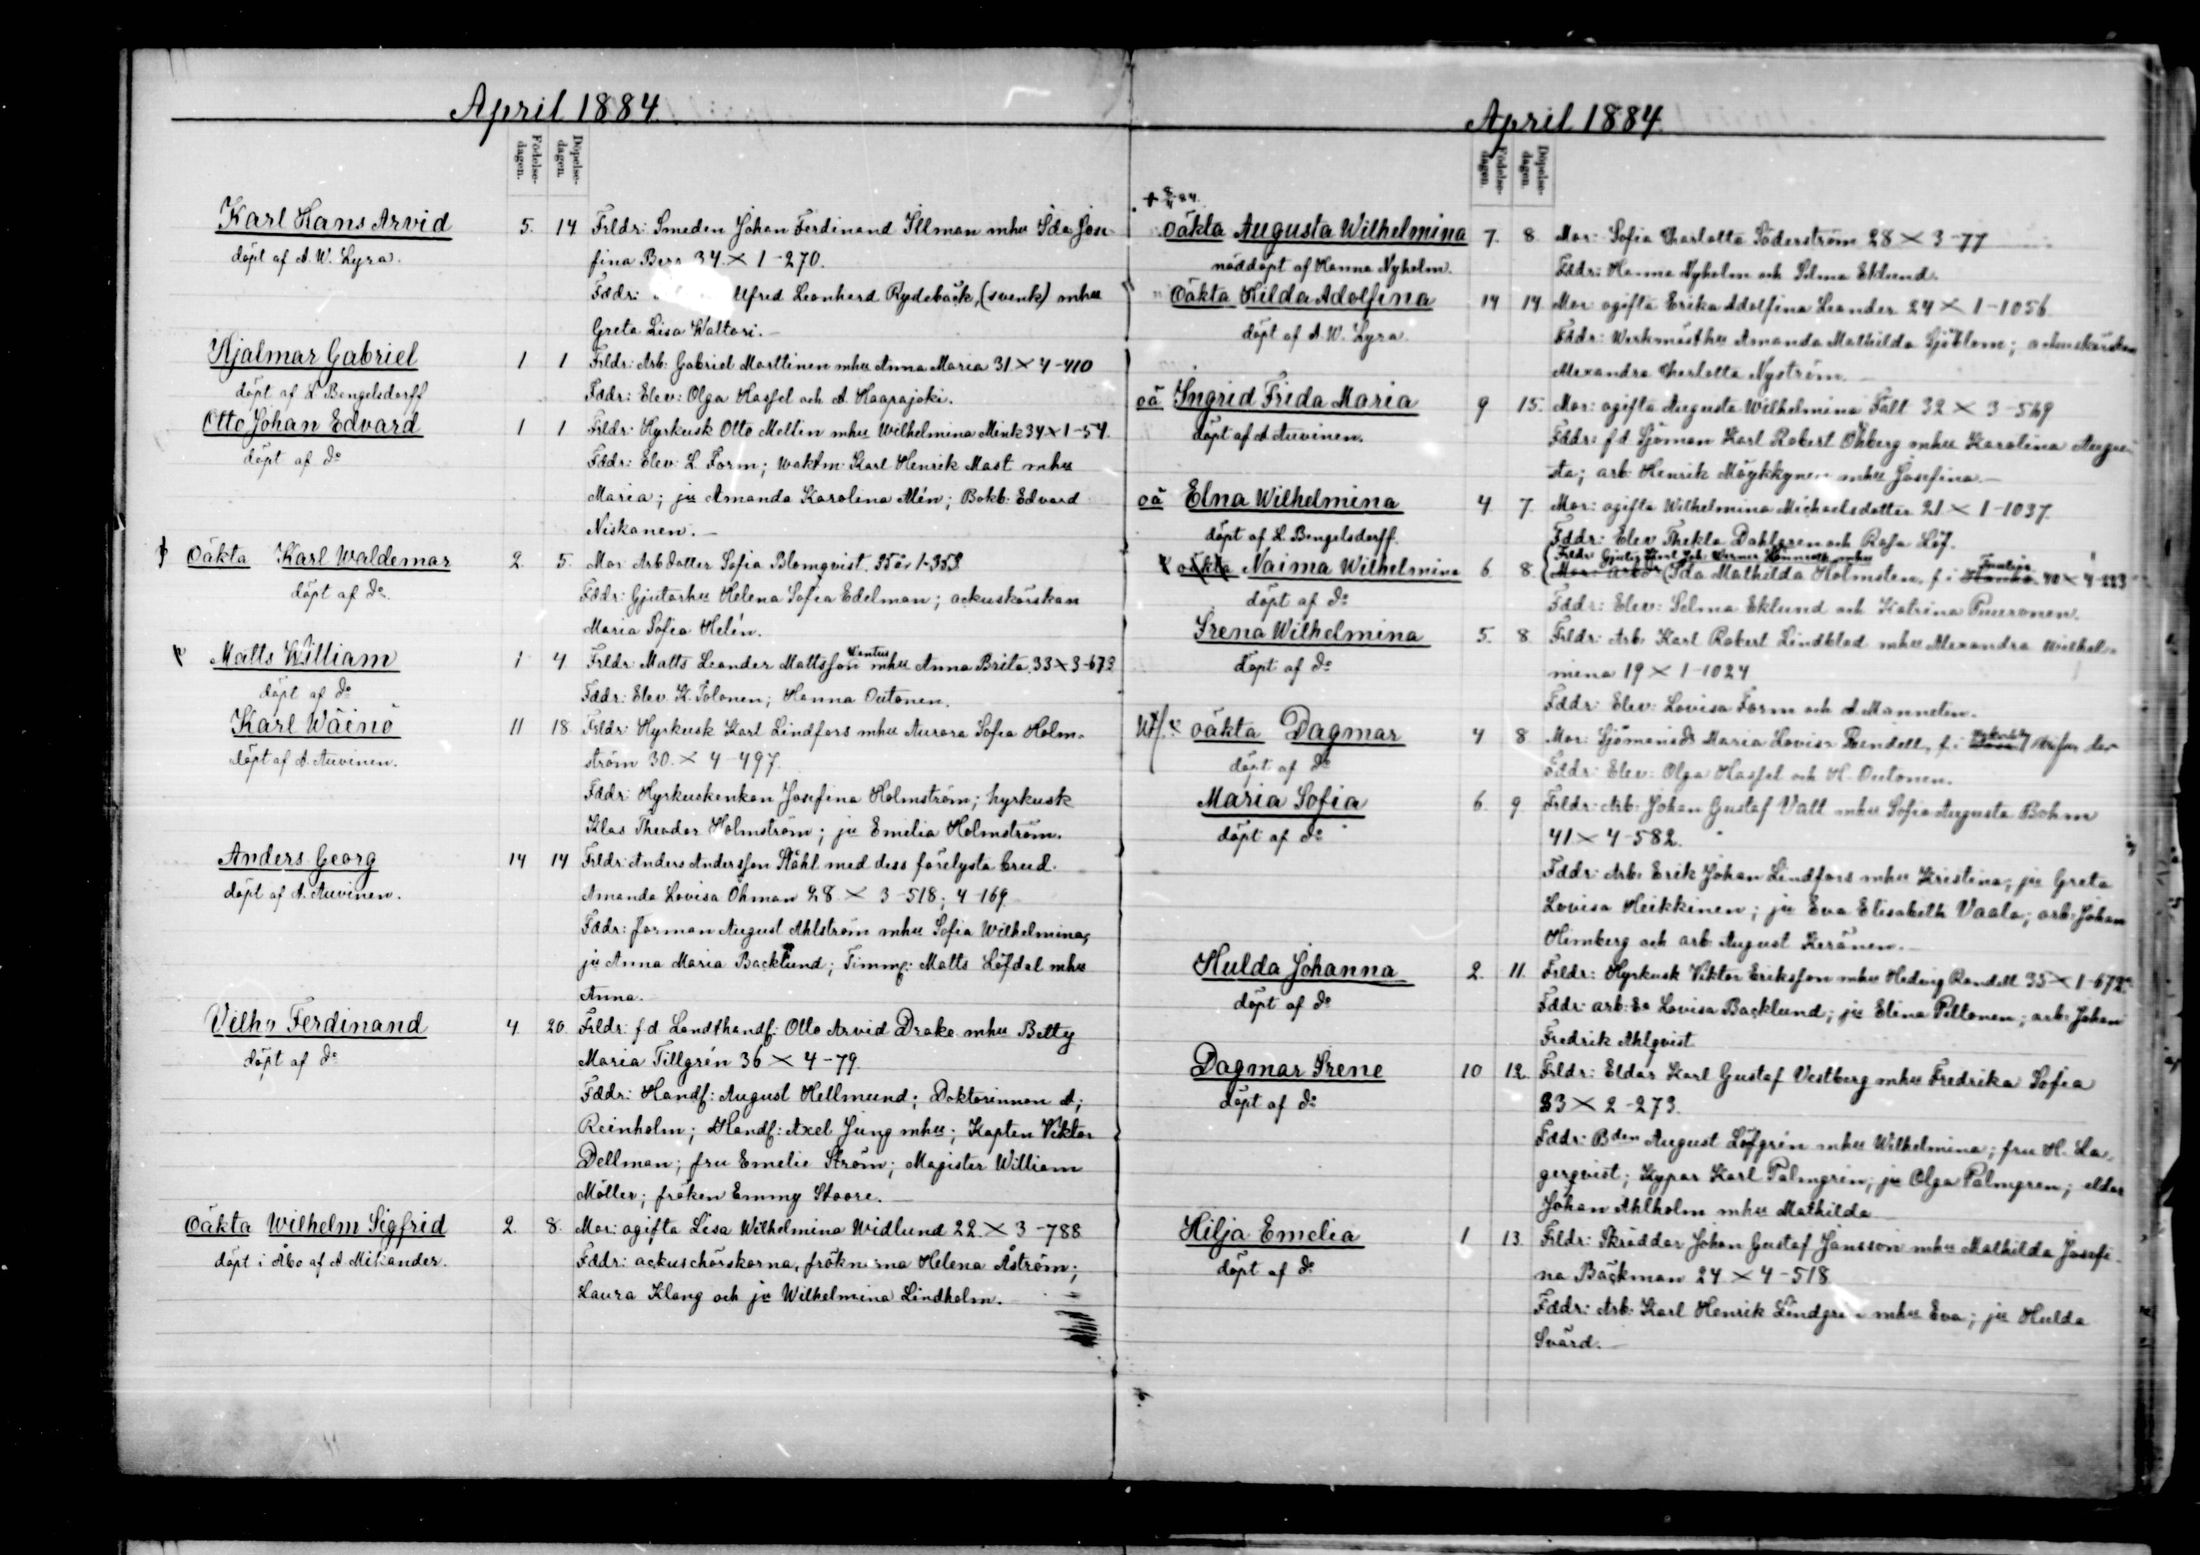 April 1884.
Födelse-dagen.
Döpelse-dagen.
Karl Hans Arvid 5. 14 Frldr: Smeden Johan Ferdinand Illman mhu Ida Jose-
döpt af A. W. Lyra. fina 34 × 1-270.
Fddr: Alfred Leonherd Rydebäck, (svensk) mhu
Greta Lisa Waltari.
Hjalmar Gabriel 1 1 Frldr: Arb. Gabriel Marttinen mhu Anna Maria 31 × 4-410
döpt af L Bengelsdorff Fddr: Elev: Olga Hassel och A. Haapajoki.
Otto Johan Edvard 1 1 Frldr: Hyrkusk Otto Mellin mhu Wilhelmina Mink 34 × 1-54.
döpt af do Fddr: Elev. L. Form; waktm. Karl Henrik Mast mhu
Maria; ju Amanda Karolina Alén; Bokb. Edvard
Niskanen.
Oäkta Karl Waldemar 2. 5. Mor Arb.dotter Sofia Blomqvist. 35 år 1-353
döpt af do Fddr: Gjutarhu Helena Sofia Edelman; ackuskörskan
Maria Sofia Helén.
Matts William 1 4 Frldr: Matts Leander Mattsson mhu Anna Brita. 33 × 3-673
döpt af do Fddr: Elev. K. Tolonen; Hanna Outonen.
Karl Wäinö 11 18 Frldr: Hyrkusk Karl Lindfors mhu Aurora Sofia Holm-
döpt af A. Auvinen. ström 30. × 4-497.
Fddr: Hyrkuskenkan Josefina Holmström; hyrkusk
Klas Theodor Holmström; ju Emelia Holmström.
Anders Georg 14 14 Frldr: Anders Andersson Ståhl med dess förelysta brud
döpt af A. Auvinen. Amanda Lovisa Öhman 28 × 3-518; 4-169
Fddr: forman August Ahlström mhu Sofia Wilhelmina;
ju Anna Maria Backlund; Timmg: Matts Löfdal mhu
Anna.
Vilho Ferdinand 4 20. Frldr: f d Landthandf: Otto Arvid Drake mhu Betty
döpt af do Maria Tillgrén 36 × 4-79.
Fddr: Handf: August Hellmund; Doktorinnan A;
Reinholm; Handf: Axel Jung mhu; Kapten Viktor
Dellman; fru Emelie Ström; Magister William
Möller; fröken Emmy Stoore.
Oäkta Wilhelm Sigfrid 2. 8. Mor: ogifta Lisa Wilhelmina Widlund 22. × 3-788
döpt i Åbo af A Mikander. Fddr: ackuschörskorna, fröknarna Helena Åström;
Laura Klang och ju Wilhelmina Lindholm.
April 1884.
Födelse-dagen.
Döpelse-dagen.
+ 8/4 84.
oäkta Augusta Wilhelmina 7. 8. Mor: Sofia Charlotta Söderström 28 × 3-77
nöddöpt af Hanna Nyholm. Fddr: Hanna Nyholm och Selma Eklund.
Oäkta Hilda Adolfina 14 14. Mor: ogifta Erika Adolfina Leander 24 × 1-1056
döpt af A. W. Lyra Fddr: Werkmästhu Amanda Mathilda Sjöblom; ackuskörskan
Alexandra Charlotta Nyström.
oä Ingrid Frida Maria 9 15. Mor: ogifta Augusta Wilhelmina Fält 32 × 3-569
döpt af A Auvinen. Fddr: f d Sjöman Karl Robert Öhberg mhu Karolina Augus-
ta; arb. Henrik Möykkynen mhu Josefina.
oä Elna Wilhelmina 4 7. Mor: ogifta Wilhelmina Michaelsdotter 21 × 1-1037.
döpt af L Bengelsdorff. Fddr: Elev Thekla Dahlgren och Rosa Löf.
oäkta Naima Wilhelmina 6. 8. Ida Mathilda Holmsten, f. i 40 × 4-223
döpt af do Fddr: Elev: Selma Eklund och Katrina Puuronen.
Irena Wilhelmina 5. 8 Frldr: Arb. Karl Robert Lindblad mhu Alexandra Wilhel-
döpt af do mina 19 × 1-1024
Fddr: Elev: Lovisa Form och A Mannelin.
oäkta Dagmar 4 8 Mor: Sjömansdr Maria Lovisa Rendell, f. i
döpt af do Fddr: Elev: Olga Hassel och H. Outonen.
Maria Sofia 6. 9. Frldr: Arb: Johan Gustaf Vall mhu Sofia Augusta Bohm
döpt af do 41 × 4-582.
Fddr: Arb. Erik Johan Lindfors mhu Kristina; ju Greta
Lovisa Heikkinen; ju Eva Elisabeth Vaala; arb. Johan
Himberg och arb. August Keränen.
Hulda Johanna 2. 11. Frldr: Hyrkusk Viktor Eriksson mhu Hedvig Randell 35 × 1-672.
döpt af do Fddr: arb: Lovisa Backlund; ju Elina Peltonen; arb: Johan
Fredrik Ahlqvist
Dagmar Irene 10 12. Frldr: Eldar Karl Gustaf Vestberg mhu Fredrika Sofia
döpt af do 33 × 2-273.
Fddr: Bden August Löfgrén mhu Wilhelmina; fru H. La-
gerqvist; Kypar Karl Palmgrén; ju Olga Palmgren; eldar
Johan Ahlholm mhu Mathilda
Hilja Emelia 1 13. Frldr: Skräddar Johan Gustaf Jansson mhu Mathilda Josefi-
döpt af do na Bäckman 24 × 4-518
Fddr: Arb. Karl Henrik Lindgren mhu Eva; ju Hulda
Svärd.